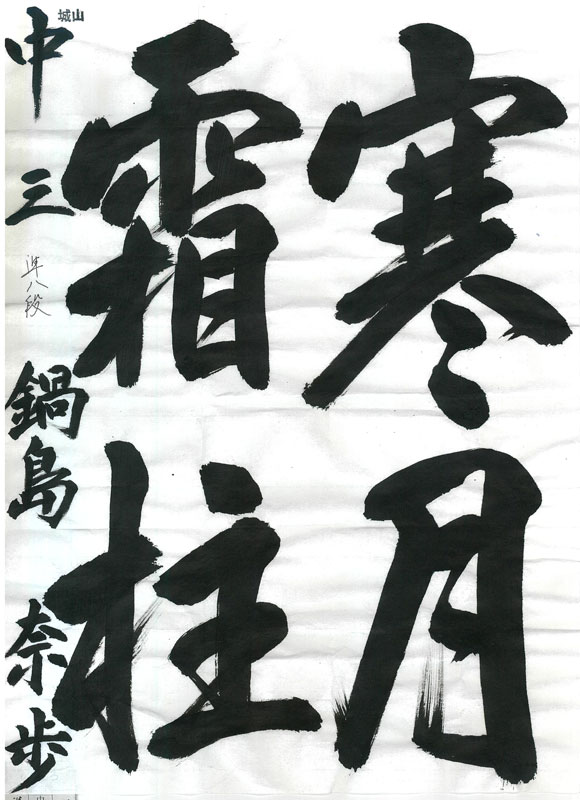 寒月
霜柱
中三 準八段 鍋島奈歩
城山